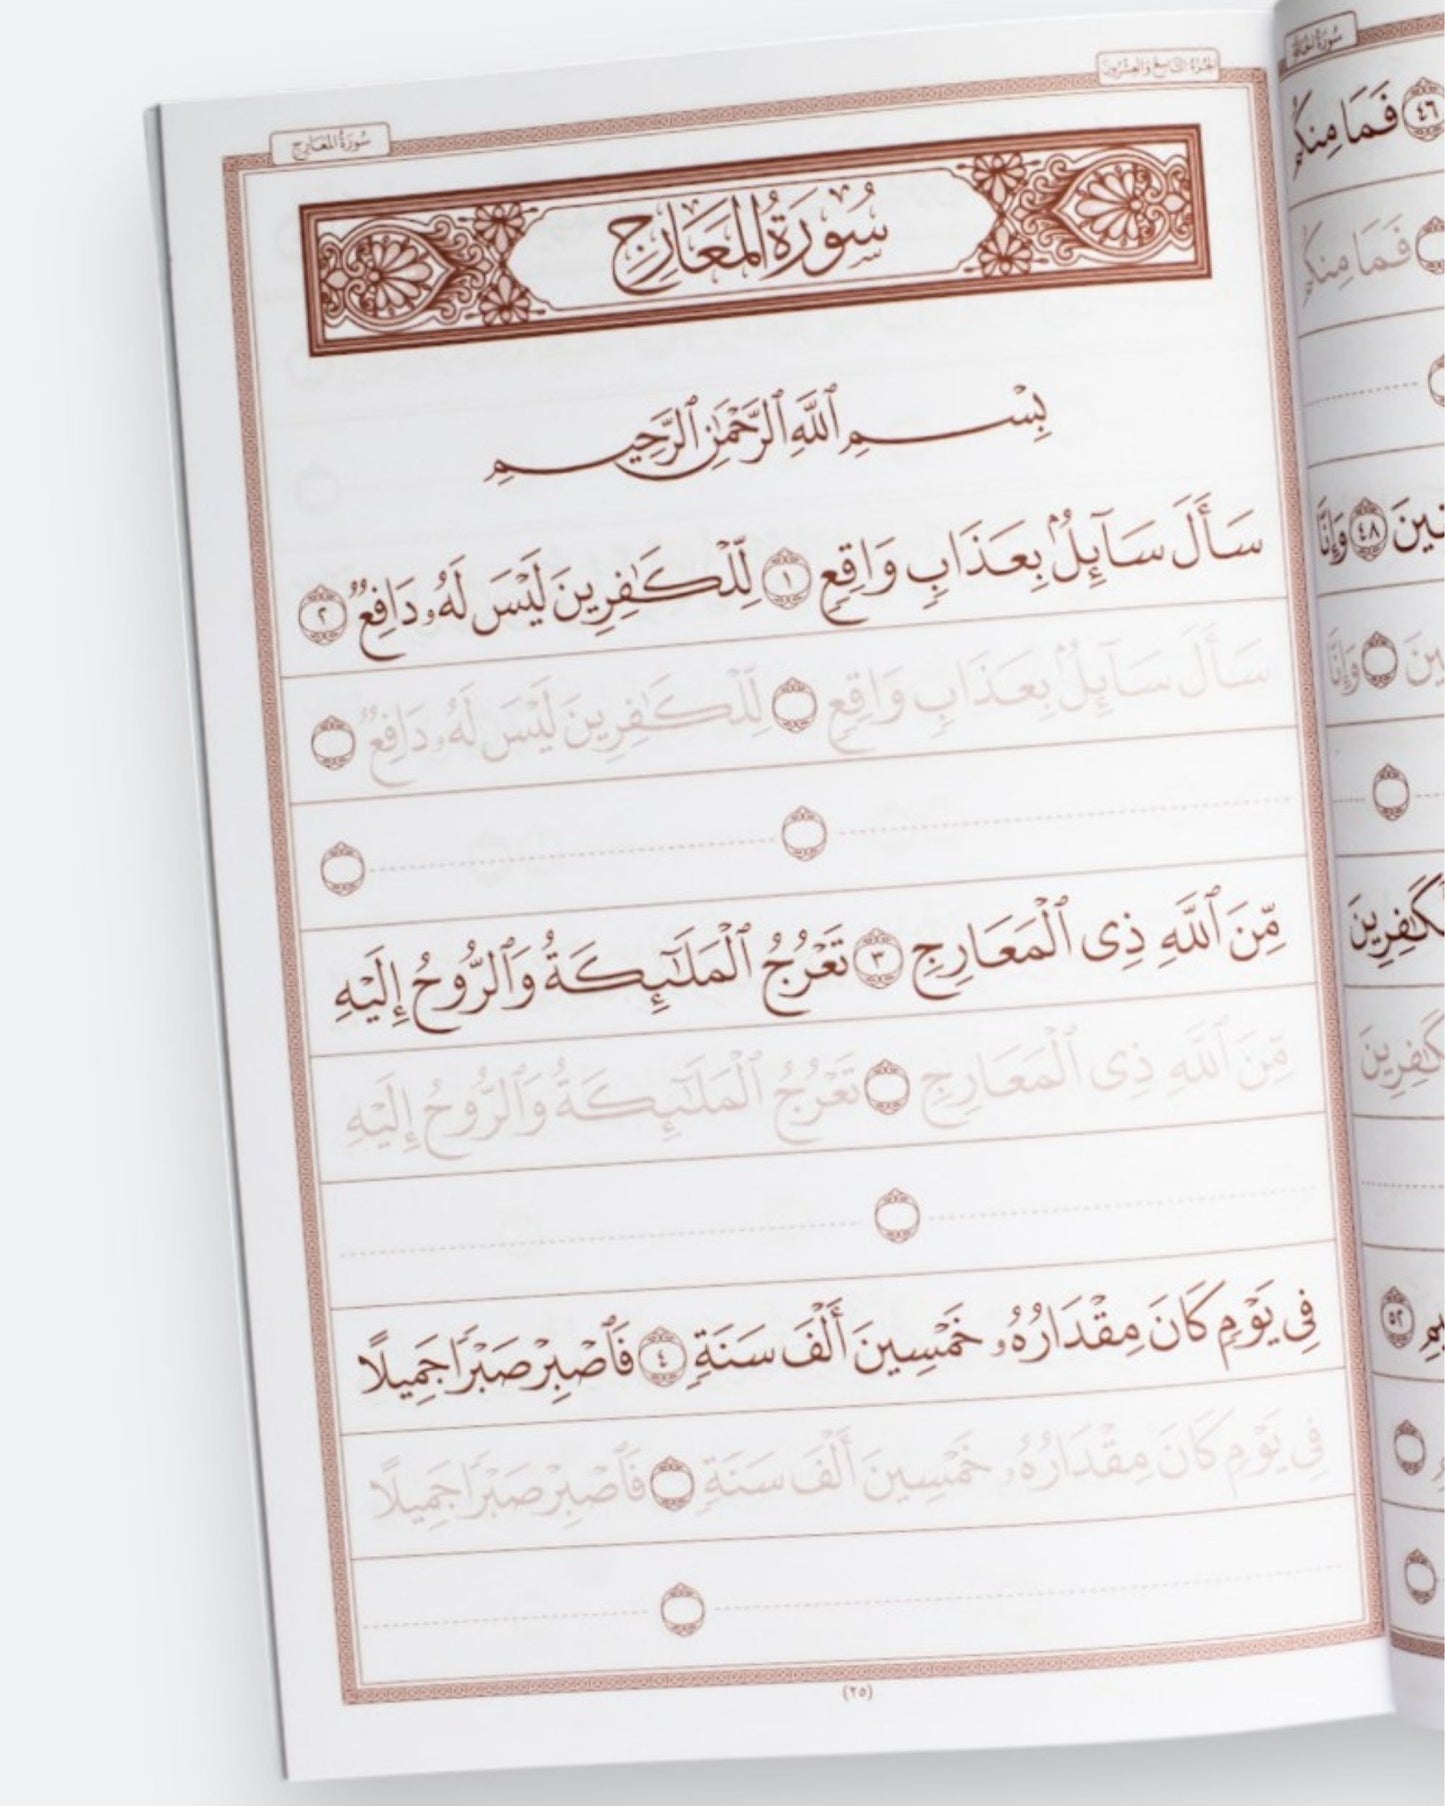 سُورَةُ المَعَارِج
الجُزْءُ التَّاسِعُ وَالعِشْرُونَ
سُورَةُ المَعَارِجِ
بِسْمِ ٱللَّهِ ٱلرَّحْمَٰنِ ٱلرَّحِيمِ
سَأَلَ سَآئِلٌۢ بِعَذَابٍ وَاقِعٍ ١ لِّلْكَٰفِرِينَ لَيْسَ لَهُۥ دَافِعٌ ٢
سَأَلَ سَآئِلٌۢ بِعَذَابٍ وَاقِعٍ لِّلْكَٰفِرِينَ لَيْسَ لَهُۥ دَافِعٌ
مِّنَ ٱللَّهِ ذِى ٱلْمَعَارِجِ ٣ تَعْرُجُ ٱلْمَلَٰٓئِكَةُ وَٱلرُّوحُ إِلَيْهِ
مِّنَ ٱللَّهِ ذِى ٱلْمَعَارِجِ تَعْرُجُ ٱلْمَلَٰٓئِكَةُ وَٱلرُّوحُ إِلَيْهِ
فِى يَوْمٍ كَانَ مِقْدَارُهُۥ خَمْسِينَ أَلْفَ سَنَةٍ ٤ فَٱصْبِرْ صَبْرًا جَمِيلًا
فِى يَوْمٍ كَانَ مِقْدَارُهُۥ خَمْسِينَ أَلْفَ سَنَةٍ فَٱصْبِرْ صَبْرًا جَمِيلًا
(٢٥)
سُورَةُ الحَاقَّة
٤٦ فَمَا مِنكُم
فَمَا مِنكُم
٤٨ وَإِنَّا
وَإِنَّا
٥٢